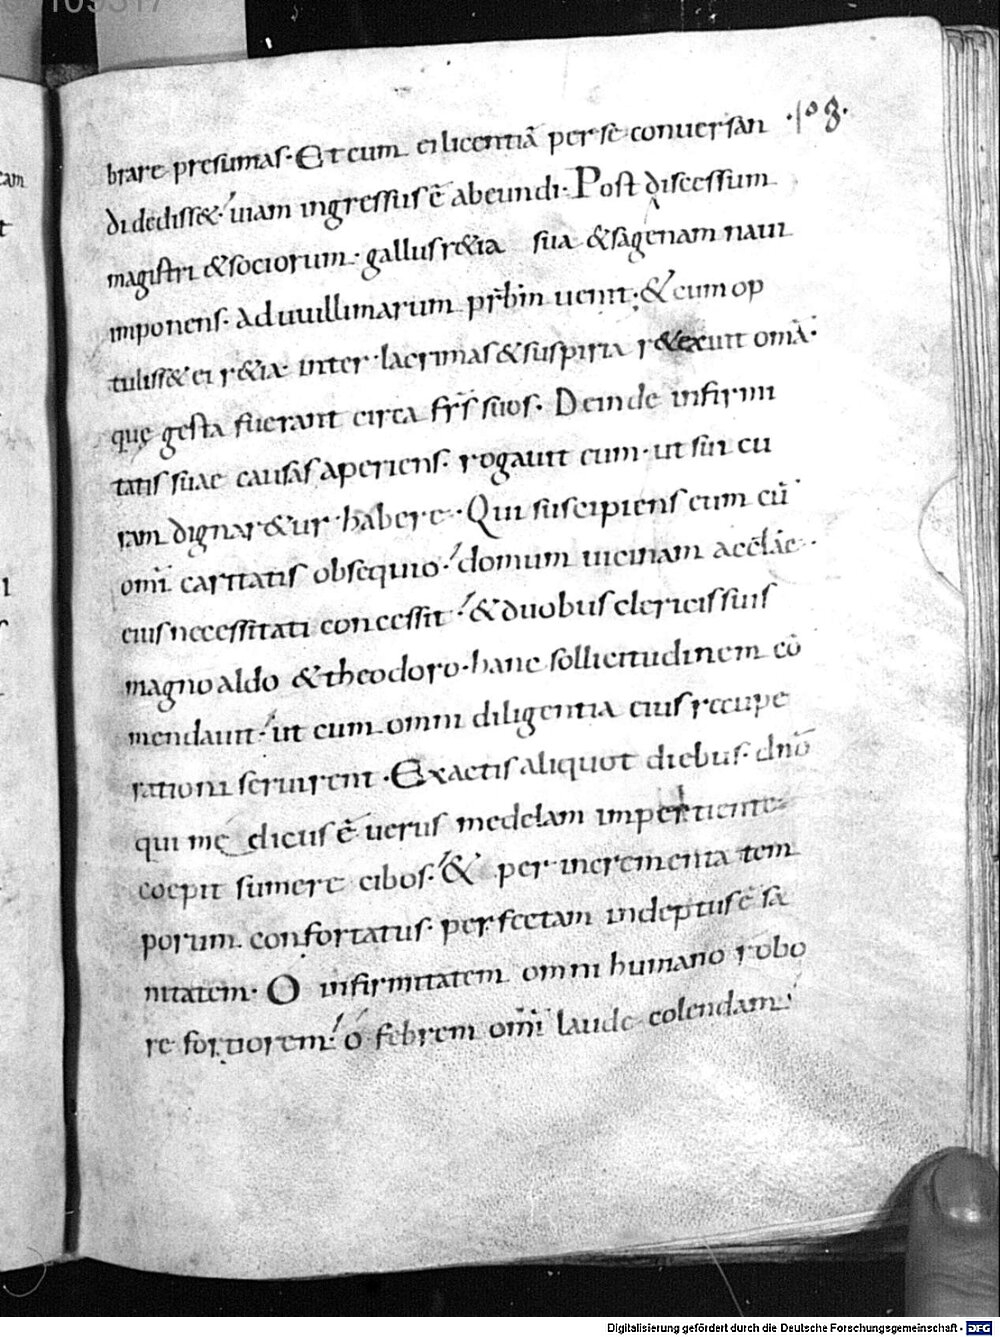 109317
·103·
brare presumas· Et cum ei licentiā per se conuersan
di dediss&· uiam ingressus ē abeundi· Post discessum
magistri & sociorum· gallus r&ia sua & sagenam naui
imponens· ad uuillimarum pr̄bm̄ uenit· & cum op
tuliss& ei r&ia· inter lacrimas & suspiria r&exuit omā·
quę gesta fuerant circa fr̄s suos· Deinde infirmi
tatis suae causas aperiens· rogauit eum· ut sui cu
ram dignar&ur habere·· Qui suscipiens eum cū
om̄i caritatis obsequio· domum uicinam aecl̄ae··
eius necessitati concessit· & duobus clericis suis
magnoaldo & theodoro· hanc sollicitudinem cō
mendauit· ut cum omni diligentia eius recupe
rationi seruirent· Exactis aliquot diebus· dn̄o
qui me dicus ē uerus medelam impertiente·
coepit sumere cibos· & per incrementa tem
porum confortatus· perfectam indeptus ē sa
nitatem· O infirmitatem omni humano robo
re fortiorem· o febrem om̄i laude colendam·
cam
t
Digitalisierung gefördert durch die Deutsche Forschungsgemeinschaft - DFG